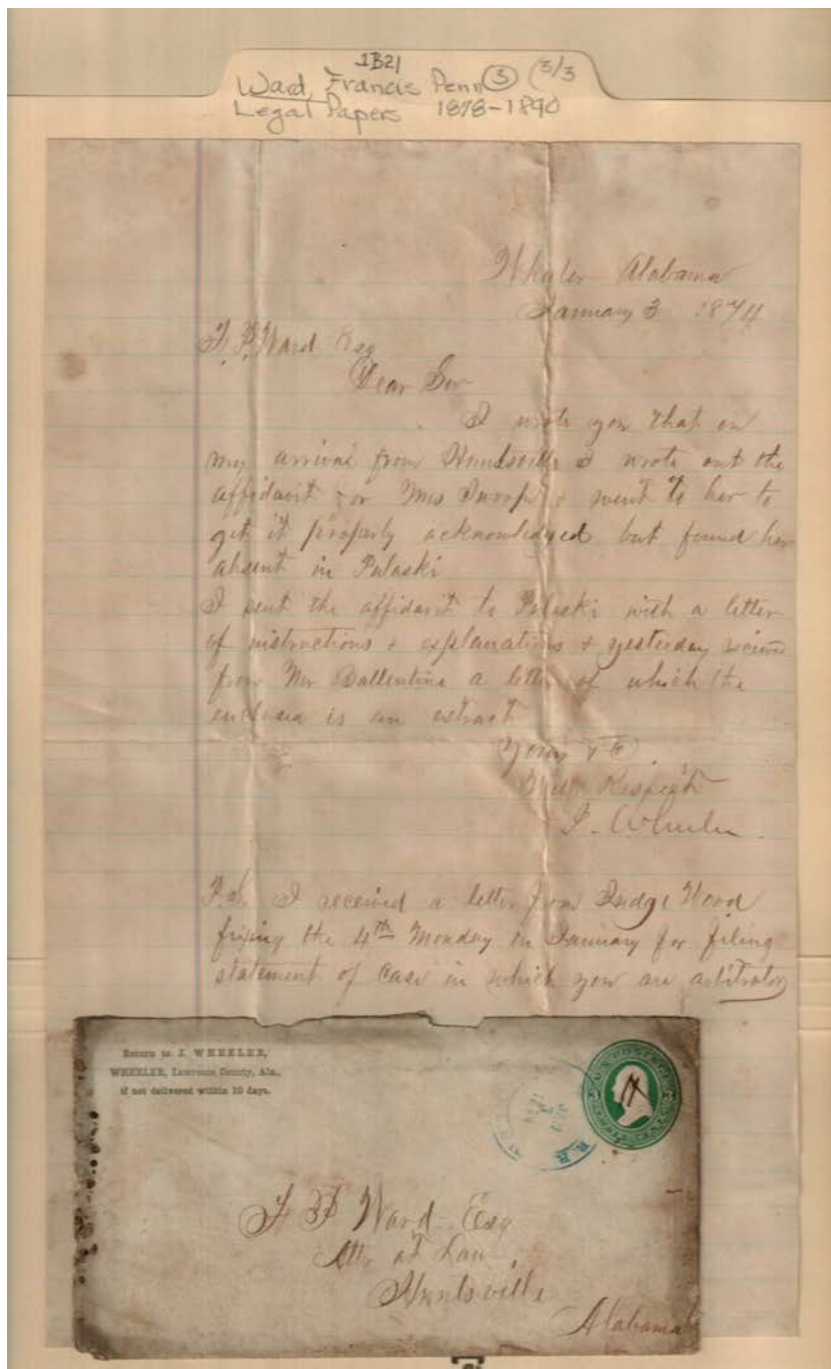 1B21
Ward, Francis Penn ③ (3/3
Legal Papers 1878-1890
Wheeler Alabama
January 3 1874
F. P. Ward Esq
Dear Sir
I wrote you that on
my arrival from Huntsville I wrote out the
affidavit for Mrs Swoope & went to her to
get it properly acknowledged but found her
absent in Pulaski
I sent the affidavit to Pulaski with a letter
of instructions & explanations & yesterday
from Mr Ballentine a letter of which the
enclosed is an extract
Yours &c
With Respect
J. Wheeler
P.S. I received a letter from Judge Wood
fixing the 4th Monday in January for filing
statement of Case in which you are arbitrator
Return to J. WHEELER,
WHEELER, Lawrence County, Ala.,
if not delivered within 10 days.
U.S. POSTAGE
3 3
THREE CENTS
R.R.
F P Ward Esq
Atty at Law
Huntsville
Alabama